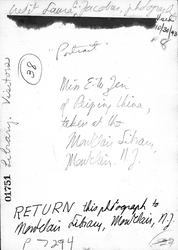 Credit Laura Jacobus, photograph
10/30/43
8
"Portrait"
38
Miss E-tu Zen
of Peiping China,
taken at the
Montclair Library,
Montclair, N.J.
Library. Visitors
01751
RETURN this photograph to
Montclair Library, Montclair, N.J.
P 7294